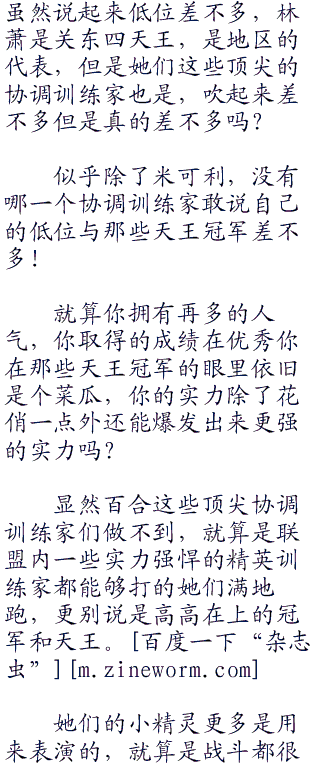 虽然说起来低位差不多，林
萧是关东四天王，是地区的
代表，但是她们这些顶尖的
协调训练家也是，吹起来差
不多但是真的差不多吗？
似乎除了米可利，没有
哪一个协调训练家敢说自己
的低位与那些天王冠军差不
多！
就算你拥有再多的人
气，你取得的成绩在优秀你
在那些天王冠军的眼里依旧
是个菜瓜，你的实力除了花
俏一点外还能爆发出来更强
的实力吗？
显然百合这些顶尖协调
训练家们做不到，就算是联
盟内一些实力强悍的精英训
练家都能够打的她们满地
跑，更别说是高高在上的冠
军和天王。[百度一下“杂志
虫”][m.zineworm.com]
她们的小精灵更多是用
来表演的，就算是战斗都很